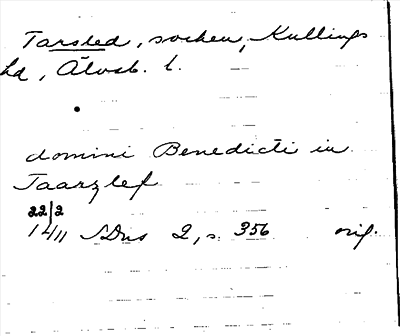 Tarsled, socken, Kullings
hd, Älvsb. l.
domini Benedicti in
Taarzlef
22/2
1411 SDns 2, s. 356 orig.